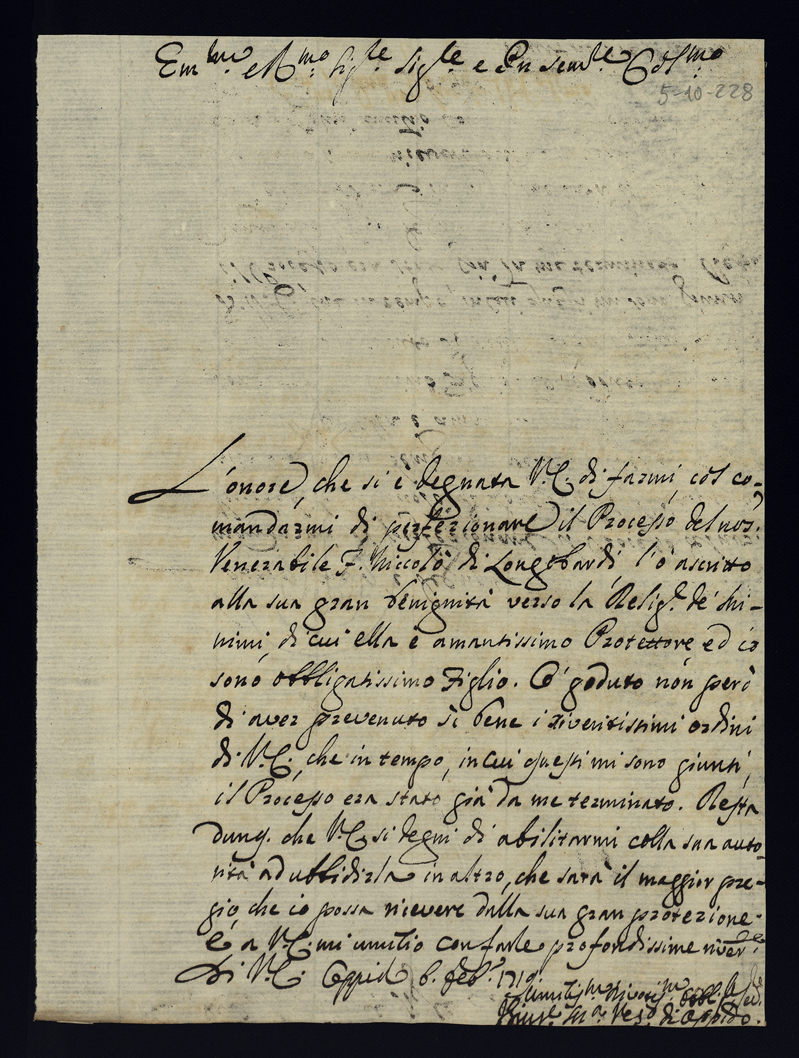 Em.mo e R.mo Sig.re Sig.re e Pn
5-10-228
L'onore, che si è degnata V.E. di farmi, col co-
mandarmi di perfezionare il Processo del nos.
Venerabile F. Niccolò di Longobardi, l'ò ascritto
alla sua gran benignità verso la Relig.e de' Mi-
nimi, di cui ella è amantissimo Protettore ed io
sono obbligatissimo Figlio. Ò goduto non però
di aver prevenuto sì bene i riveritissimi ordini
di V.E., che in tempo, in cui questi mi sono giunti,
il Processo era stato già da me terminato. Resta
dunq. che V.E. si degni di abilitarmi colla sua auto-
rità ad ubbidirla in altro, che sarà il maggior pre-
gio, che io possa ricevere dalla sua gran protezione.
E a V.E. mi umilio con farle profondissime river.e
Di V.E. Oppid. 6. Feb.
di Oppido.